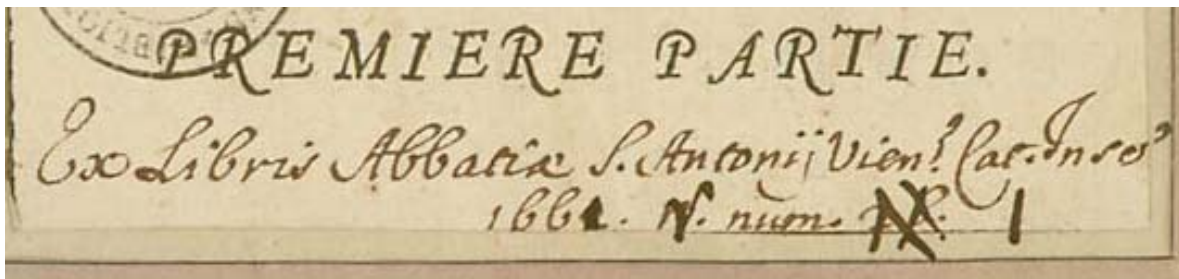 PREMIERE PARTIE.
Ex Libris Abbatiæ S. Antonij Vien.s Cat. Inse
1661. N. num. I